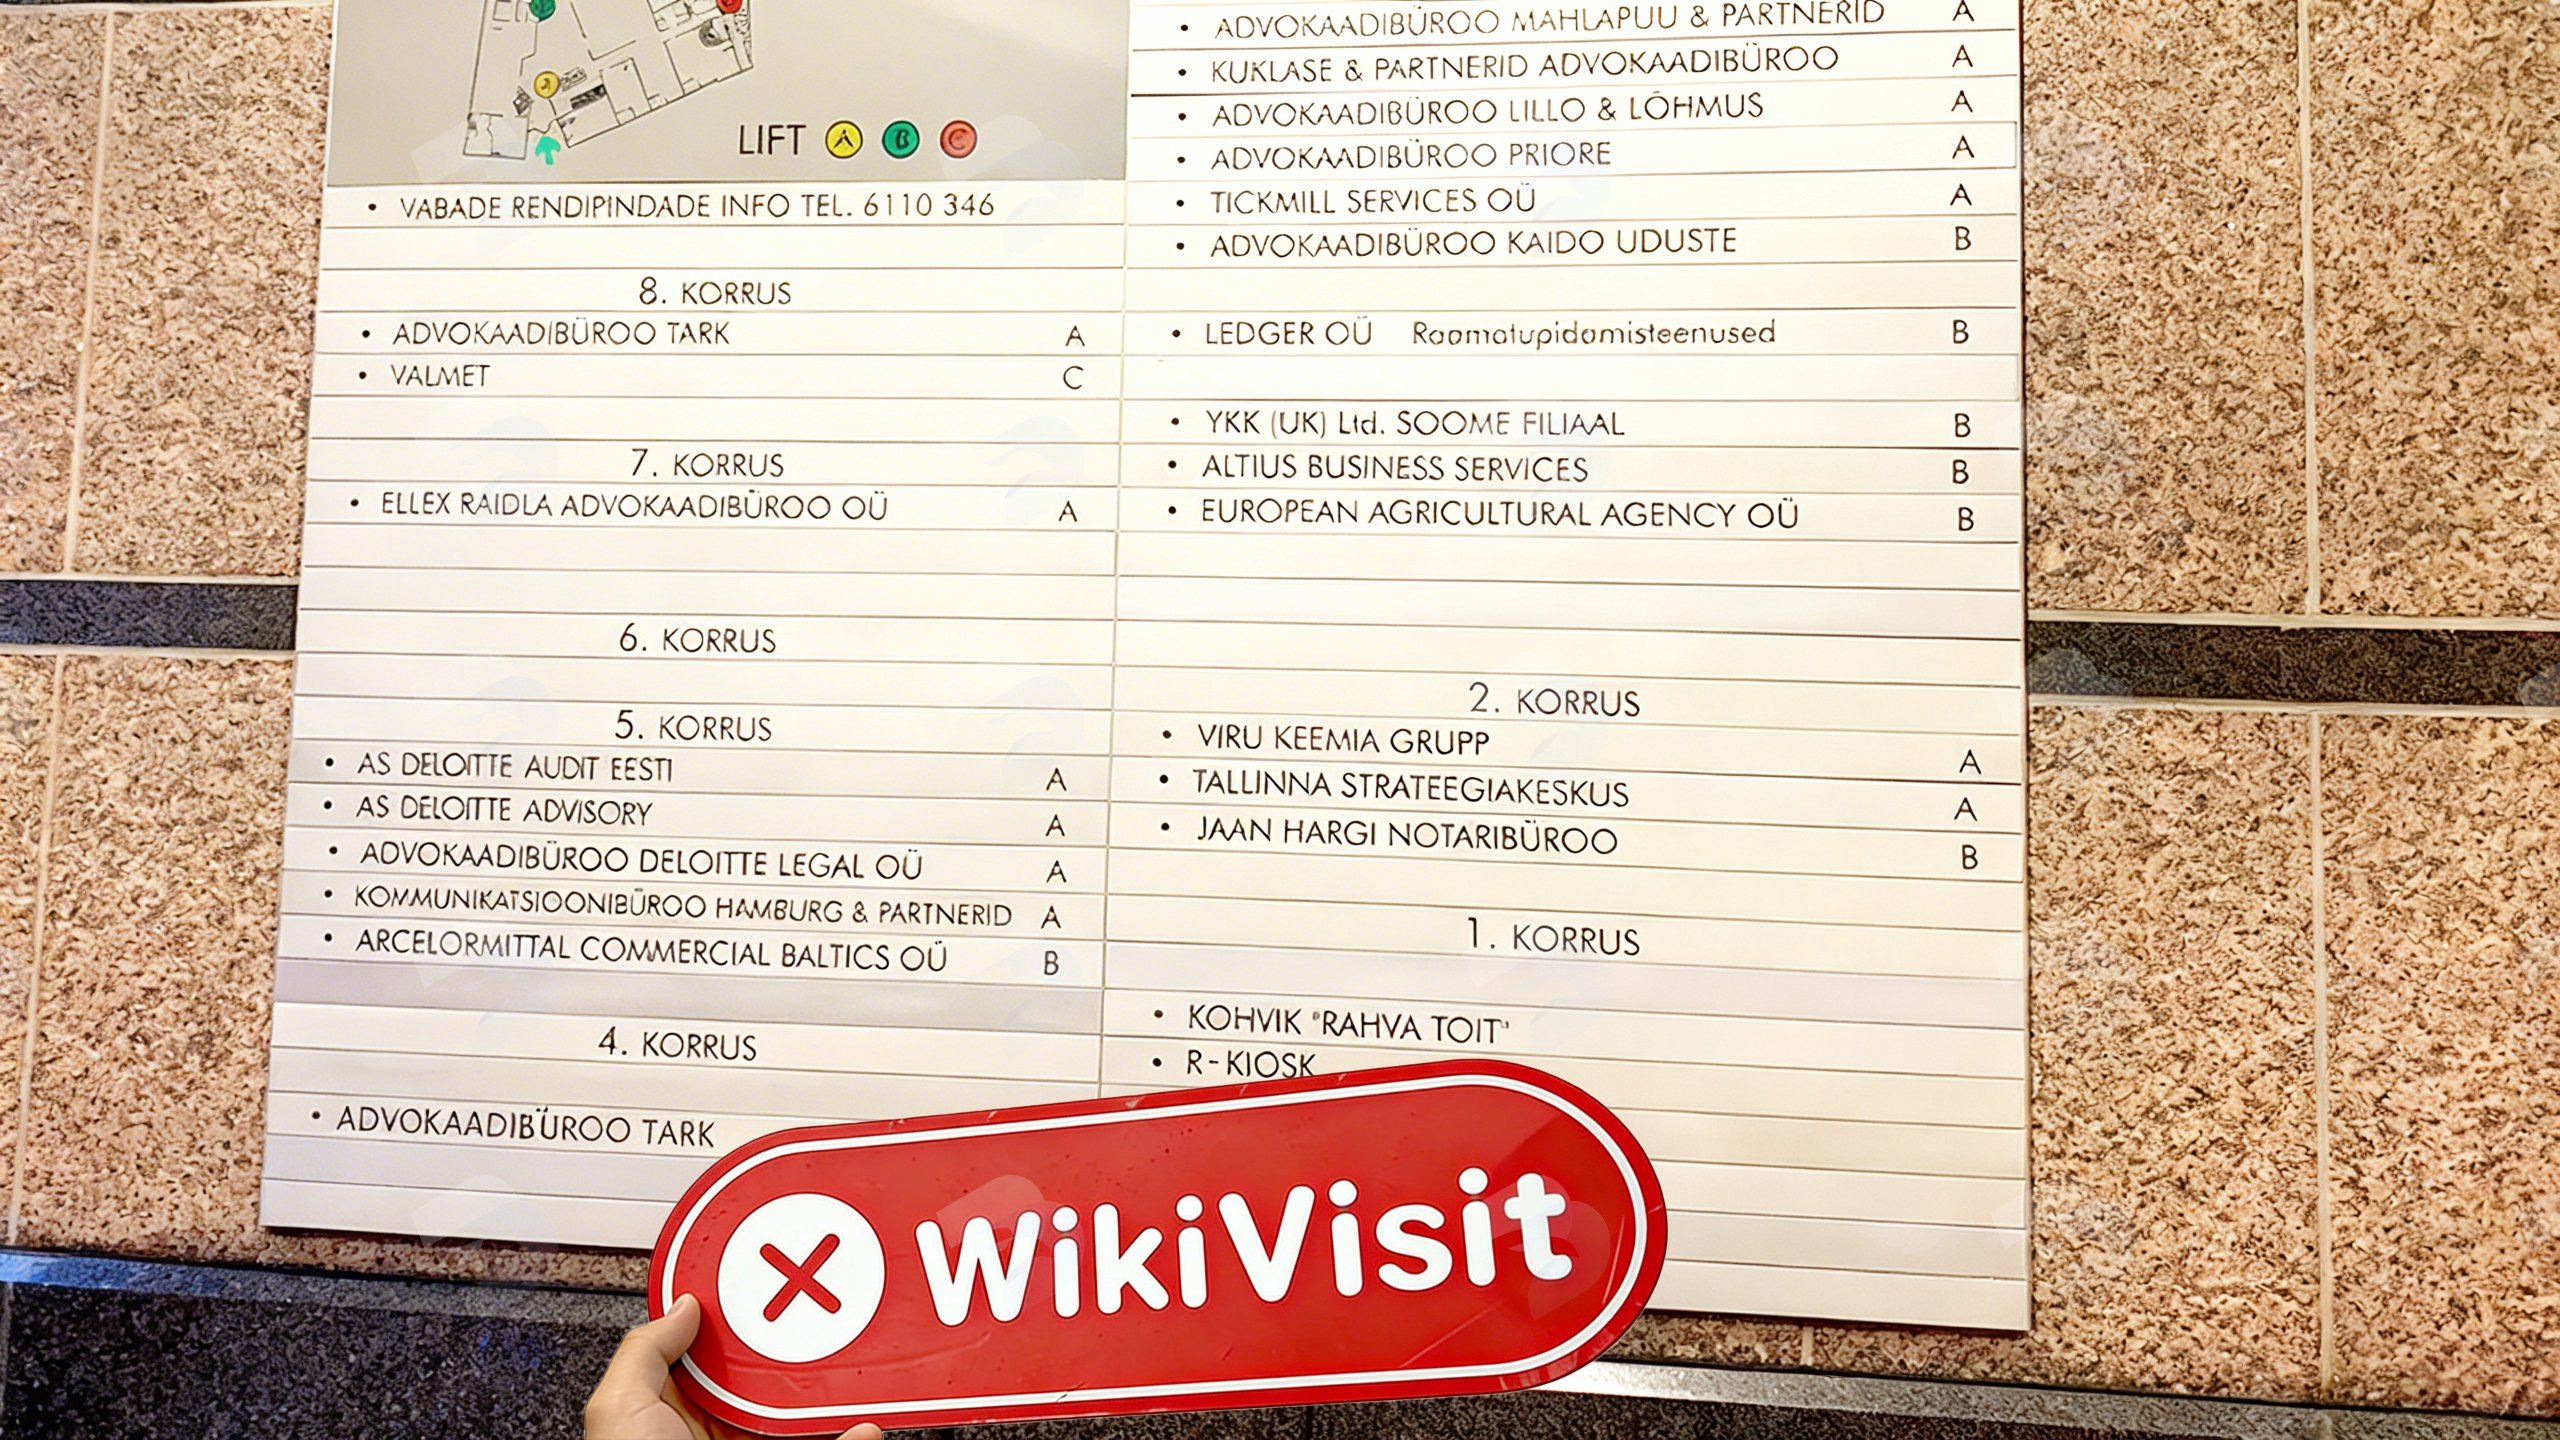 LIFT A B C
• VABADE RENDIPINDADE INFO TEL. 6110 346
8. KORRUS
• ADVOKAADIBÜROO TARK A
• VALMET C
7. KORRUS
• ELLEX RAIDLA ADVOKAADIBÜROO OÜ A
6. KORRUS
5. KORRUS
• AS DELOITTE AUDIT EESTI A
• AS DELOITTE ADVISORY A
• ADVOKAADIBÜROO DELOITTE LEGAL OÜ A
• KOMMUNIKATSIOONIBÜROO HAMBURG & PARTNERID A
• ARCELORMITTAL COMMERCIAL BALTICS OÜ B
4. KORRUS
• ADVOKAADIBÜROO TARK
• ADVOKAADIBÜROO MAHLAPUU & PARTNERID A
• KUKLASE & PARTNERID ADVOKAADIBÜROO A
• ADVOKAADIBÜROO LILLO & LÕHMUS A
• ADVOKAADIBÜROO PRIORE A
• TICKMILL SERVICES OÜ A
• ADVOKAADIBÜROO KAIDO UDUSTE B
• LEDGER OÜ Raamatupidamisteenused B
• YKK (UK) Ltd. SOOME FILIAAL B
• ALTIUS BUSINESS SERVICES B
• EUROPEAN AGRICULTURAL AGENCY OÜ B
2. KORRUS
• VIRU KEEMIA GRUPP A
• TALLINNA STRATEEGIAKESKUS A
• JAAN HARGI NOTARIBÜROO B
1. KORRUS
• KOHVIK "RAHVA TOIT"
• R-KIOSK
WikiVisit